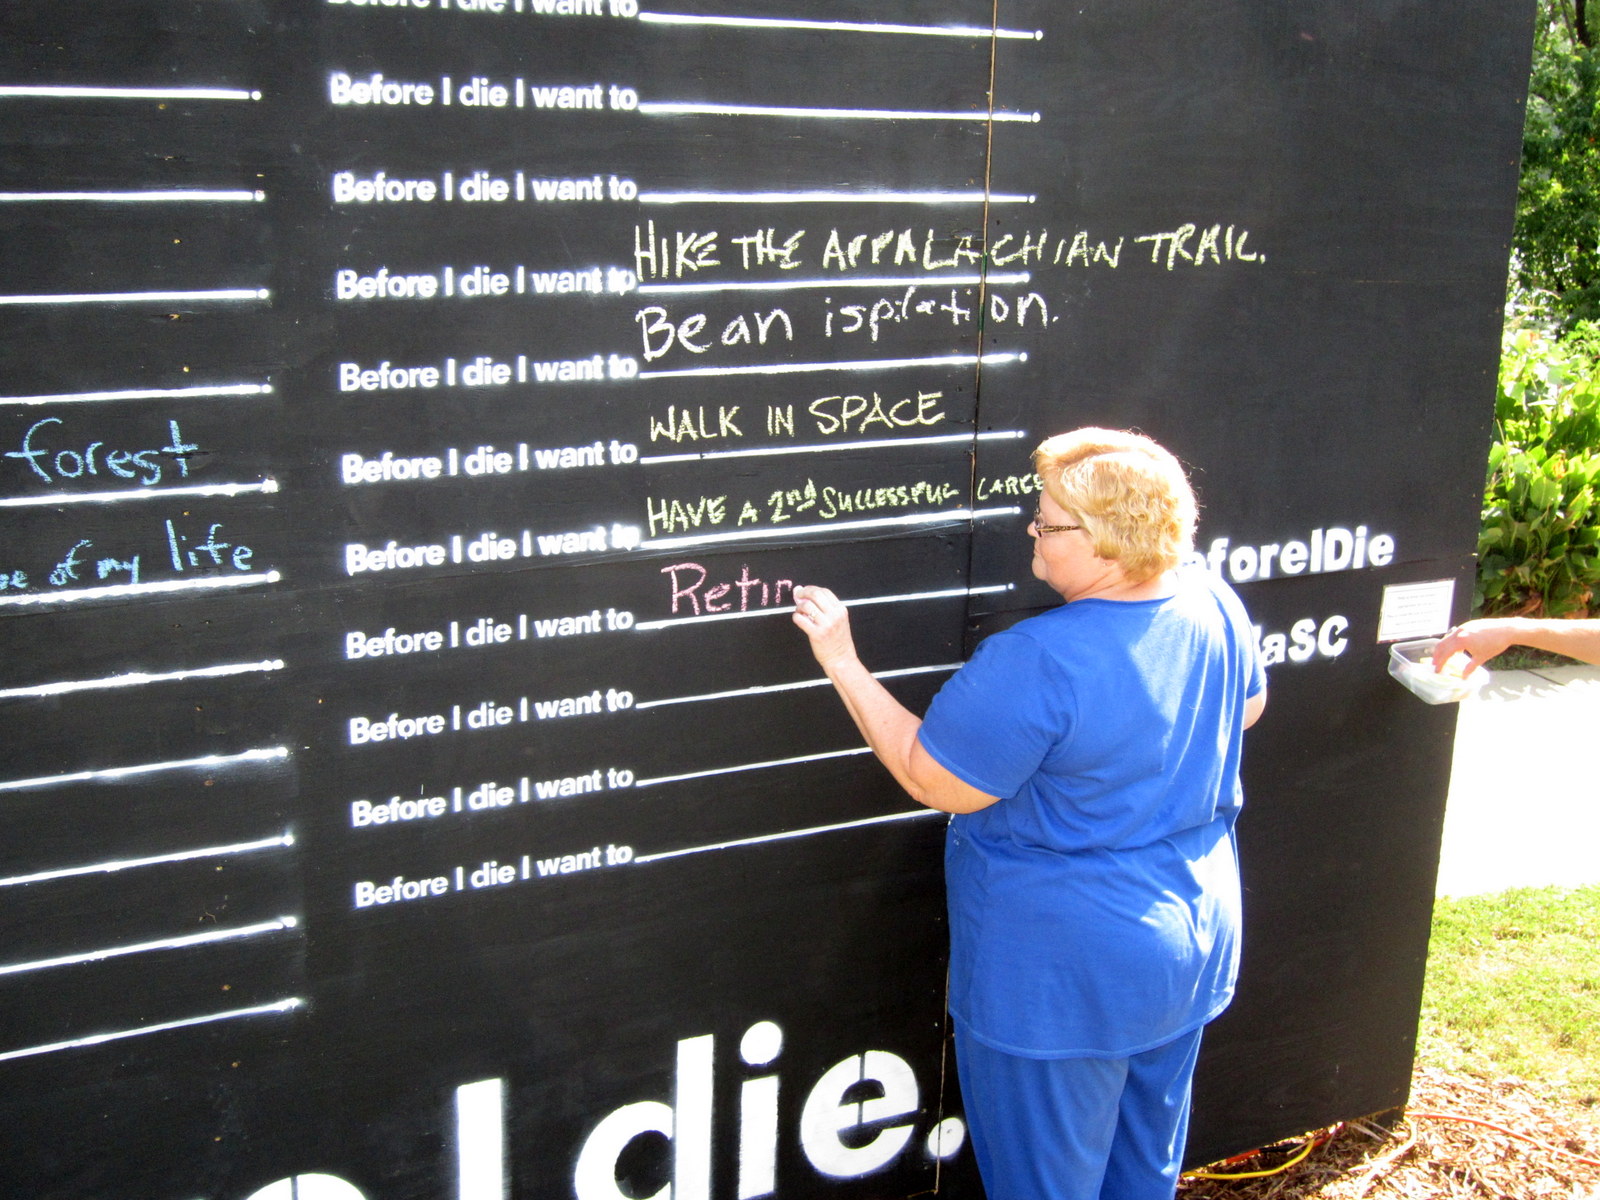 Before I die I want to
Before I die I want to
Before I die I want to
Before I die I want to HIKE THE APPALACHIAN TRAIL.
Before I die I want to Bean ispilation.
Before I die I want to WALK IN SPACE
forest
Before I die I want to HAVE A 2nd SUCCESSFUL CAREE
of my life
Before I die I want to Retir
eforeIDie
aSC
Before I die I want to
Before I die I want to
Before I die I want to
I die.